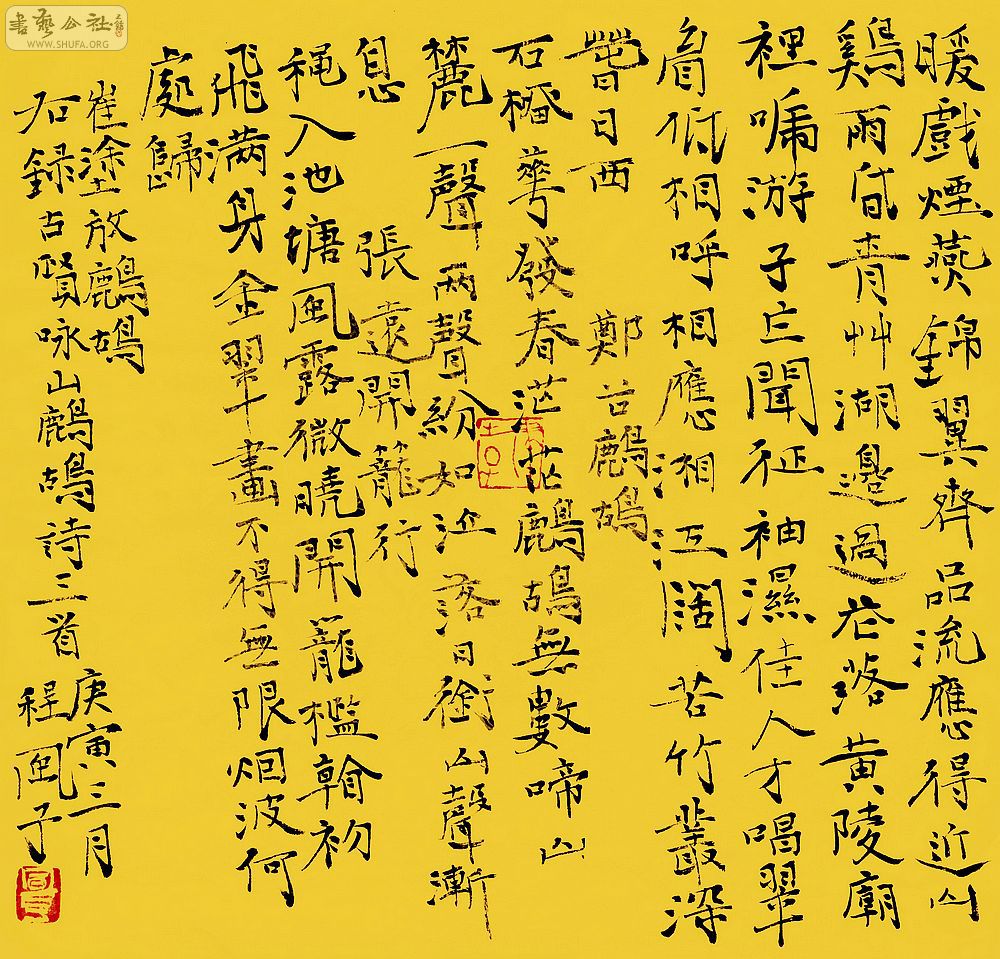 書藝公社
WWW.SHUFA.ORG
暖戲煙燕錦翼齊品流應得近山
鷄雨昏青艸湖邊過花落黄陵廟
裡啼游子乍聞征袖濕佳人才唱翠
眉低相呼相應湘江闊苦竹叢深
萅日西
鄭谷鷓鴣
石橊華發春茫茫鷓鴣無數啼山
麓一聲兩聲紛如泣落日銜山聲漸
息
張遠開籠行
穐入池塘風露微曉開籠檻初
飛满身金翠畫不得無限烟波何
處歸
崔塗放鷓鴣
右録古賢咏山鷓鴣詩三首
庚寅三月
程風子